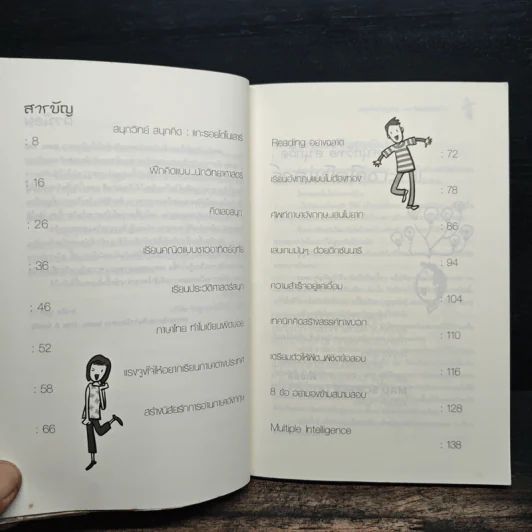 สารบัญ
สนุกวิทย์ สนุกคิด : แกะรอยไดโนเสาร์
: 8
ฝึกคิดแบบ...นักวิทยาศาสตร์
: 16
คิดเลขสนุก
: 26
เรียนคณิตแบบชาวอาทิตย์อุทัย
: 36
เรียนประวัติศาสตร์สนุก
: 46
ภาษาไทย ทำไมเขียนผิดบ่อย
: 52
แรงจูงใจให้อยากเรียนภาษาต่างประเทศ
: 58
สร้างนิสัยรักการอ่านภาษาอังกฤษ
: 66
Reading อย่างฉลาด
: 72
เรียนอังกฤษแบบไม่ต้องท่อง
: 78
ศัพท์ภาษาอังกฤษเล่นไม่ยาก
: 86
เล่นเกมมันๆ ด้วยดิกชันนารี
: 94
ความสำเร็จอยู่แค่เอื้อม
: 104
เทคนิคคิดสร้างสรรค์ทางบวก
: 110
เตรียมตัวให้ฟิต...พิชิตข้อสอบ
: 116
8 ข้อ อย่ามองข้ามสนามสอบ
: 128
Multiple Intelligence
: 138